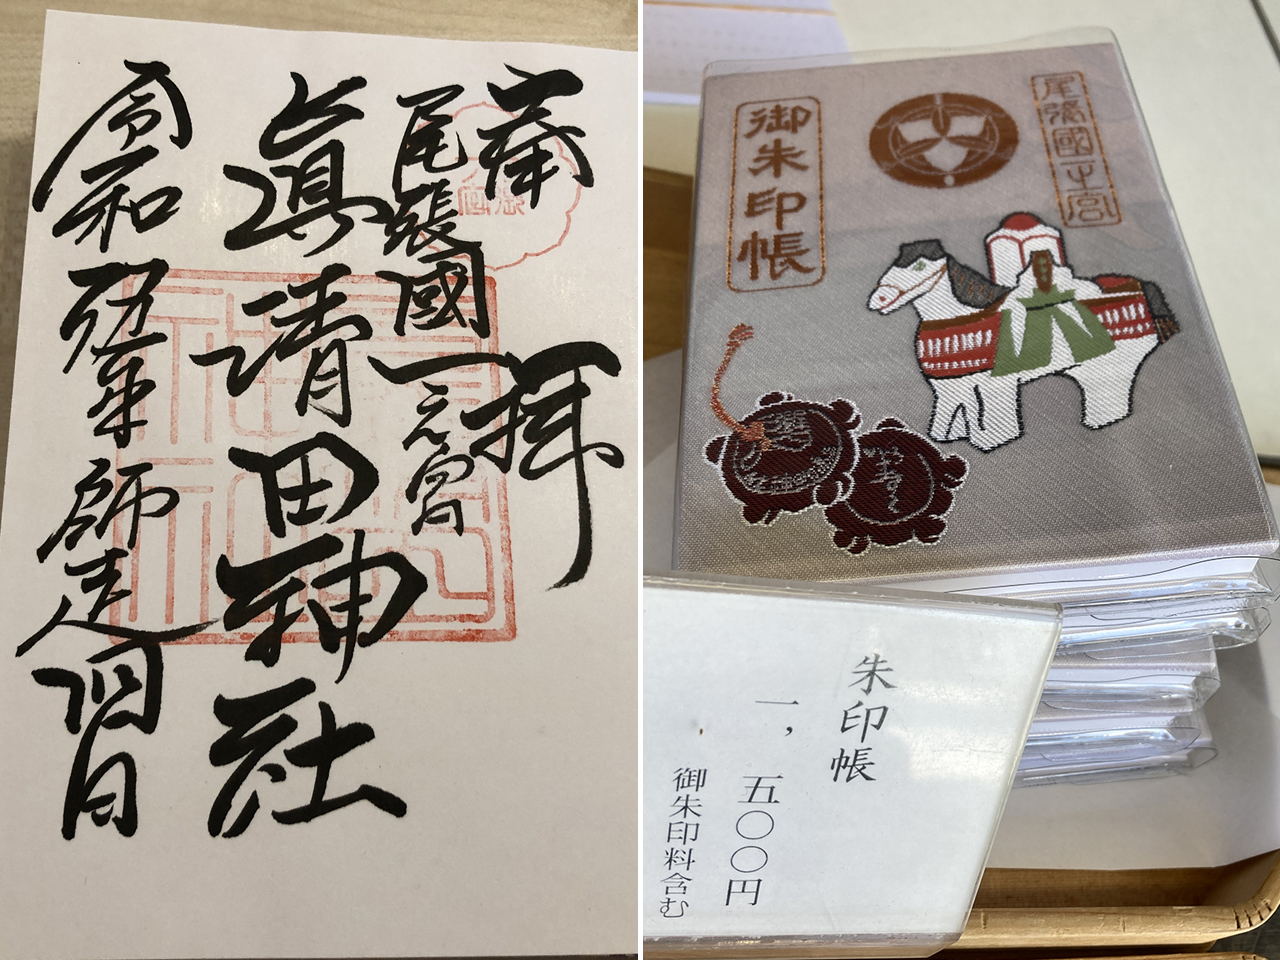 奉拝
尾張國一之宮
眞清田神社
令和 年師走 日
尾張國一之宮
御朱印帳
朱印帳
一，五〇〇円
御朱印料含む